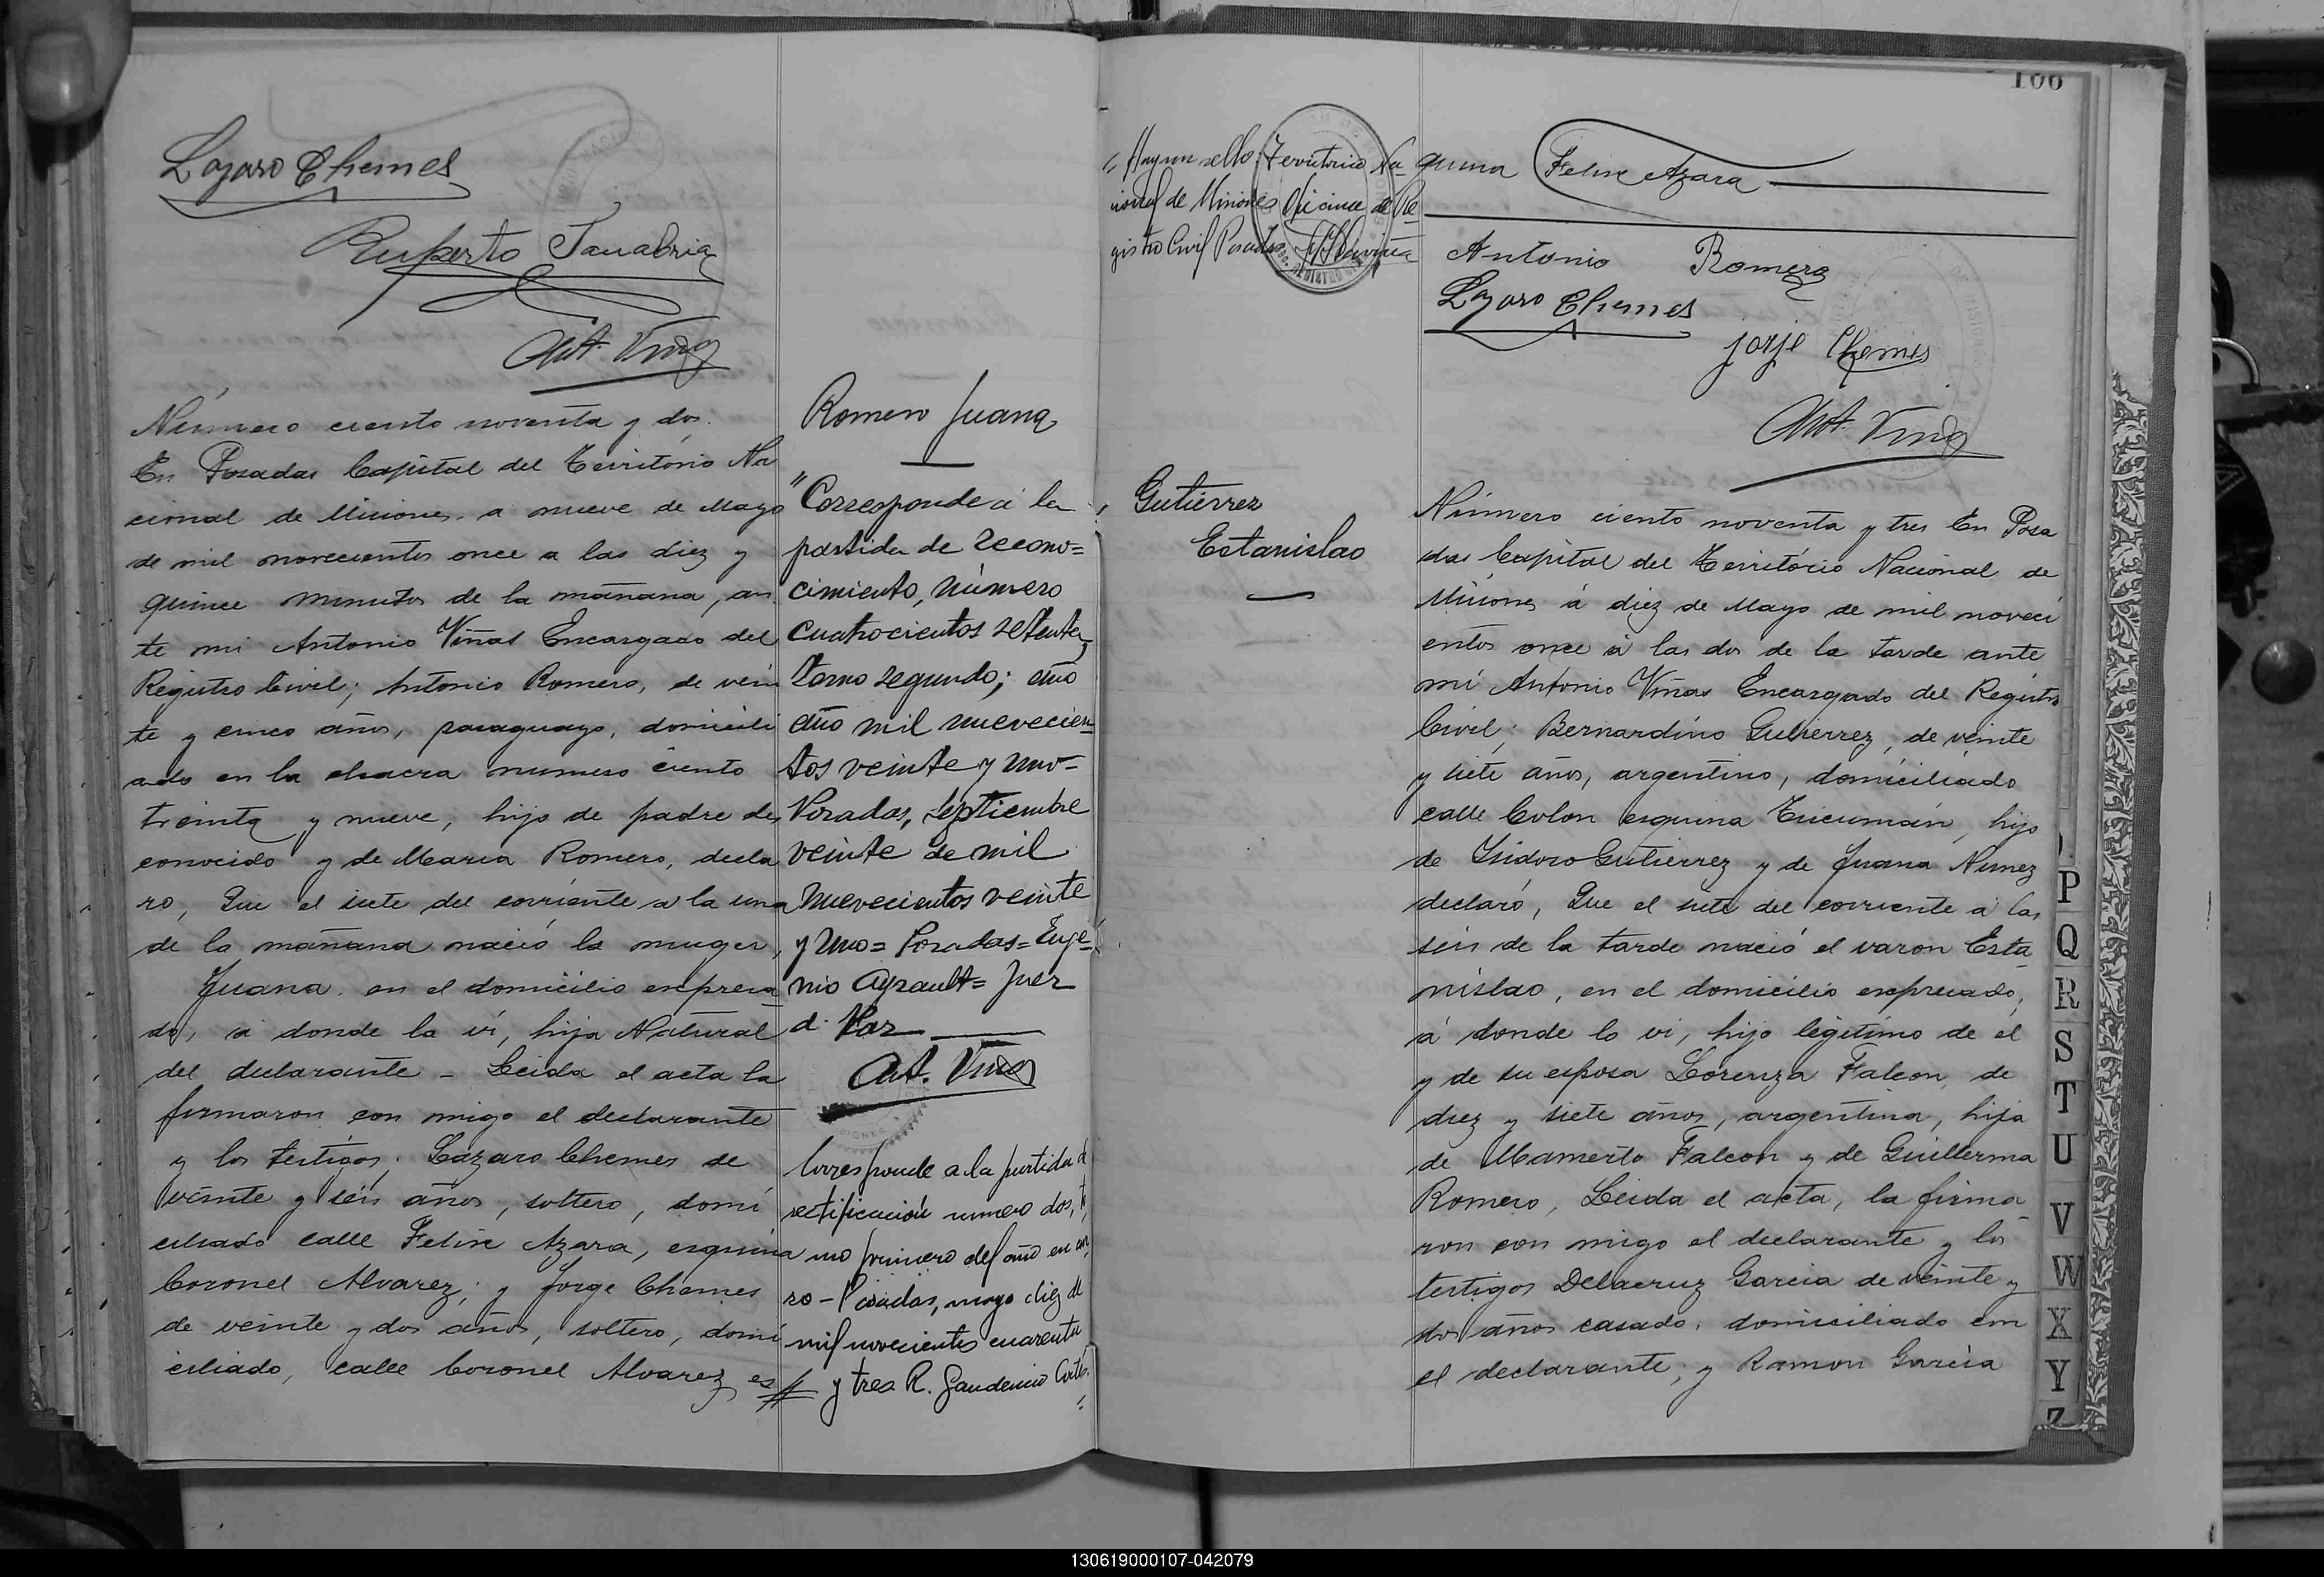 Lazaro Chemes
Ruperto Sanabria
Ant. Viñas
Número ciento noventa y dos.
En Posadas Capital del Território Na
cional de Misiones, a nueve de Mayo
de mil novecientos once a las diez y
quince minutos de la mañana, an
te mi Antonio Viñas Encargado del
Registro Civil; Antonio Romero, de vein
te y cinco años, paraguayo, domicili
ado en la chacra numero ciento
treinta y nueve, hijo de padre des
conocido y de Maria Romero, decla
ro, Que el siete del corriente a la una
de la mañana nació la muger,
Juana, en el domicilio expresa
do, á donde la ví, hija Natural
del declarante - Leida el acta la
firmaron con migo el declarante
y los testigos; Lazaro Chemes de
veinte y seis años, soltero, domi
ciliado calle Felix Azara, esquina
Coronel Alvarez; y Jorge Chemes
de veinte y dos años, soltero, domi
ciliado, calle Coronel Alvarez es
Romero Juana
"Corresponde á la
partida de recono=
cimiento, número
cuatrocientos setenta,
tomo segundo; año
año mil nuevecien
tos veinte y uno-
Posadas, Septiembre
veinte de mil
nuevecientos veinte
y uno= Posadas= Euge-
nio Ayrault= Juez
d. Paz
Ant. Viñas
Corresponde a la partida d
rectificación numero dos, to
mo primero del año en cur
so - Posadas, mayo diez de
mil novecientos cuarenta
y tres R. Gaudencio Cortés.
"Hay un sello: Territorio Na-
cional de Misiones Oficina de Re-
gistro Civil Posadas
106
quina Felix Azara
Antonio Romero
Lazaro Chemes
Jorje Chemes
Ant. Viñas
Gutiérrez
Estanislao
Número ciento noventa y tres En Posa
das Capital del Território Nacional de
Misiones á diez de Mayo de mil noveci
entos once á las dos de la tarde ante
mí Antonio Viñas Encargado del Registro
Civil; Bernardino Gutierrez, de veinte
y siete años, argentino, domiciliado
calle Colon esquina Tucumán, hijo
de Isidoro Gutierrez y de Juana Nunez
declaró, Que el siete del corriente á las
seis de la tarde nació el varon Esta
nislao, en el domicilio expresado,
á donde lo vi, hijo legitimo de el
y de su esposa Lorenza Falcon, de
diez y siete años, argentina, hija
de Mamerto Falcon y de Guillerma
Romero, Leida el acta, la firma
ron con migo el declarante y los
testigos Delacruz Garcia de veinte y
dos años casado, domiciliado con
el declarante; y Ramon Garcia
P
Q
R
S
T
U
V
W
X
Y
Z
130619000107-042079